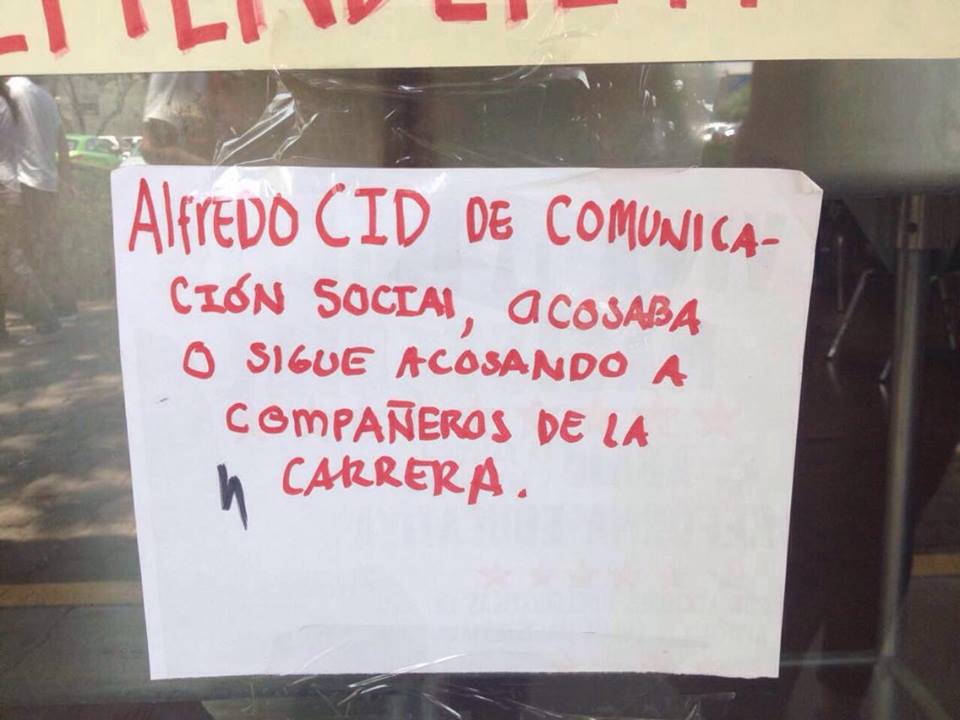 AlfREDO CID DE COMUNICA-
CIÓN SOCIAl, ACOSABA
O SIGUE ACOSANDO A
COMPAÑEROS DE LA
CARRERA.